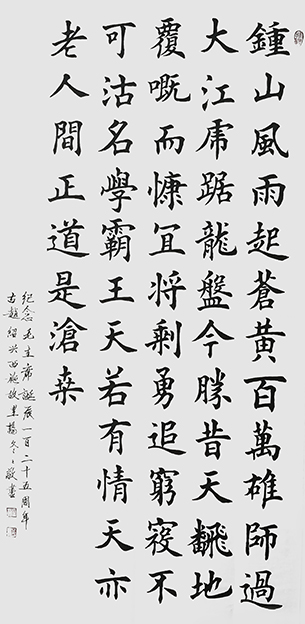 鍾山風雨起蒼黃百萬雄師過
大江虎踞龍盤今勝昔天翻地
覆慨而慷宜将剩勇追窮寇不
可沽名學霸王天若有情天亦
老人間正道是滄桑
纪念毛主席誕辰一百二十五周年
古越绍兴西施故里楊冬冬敬書